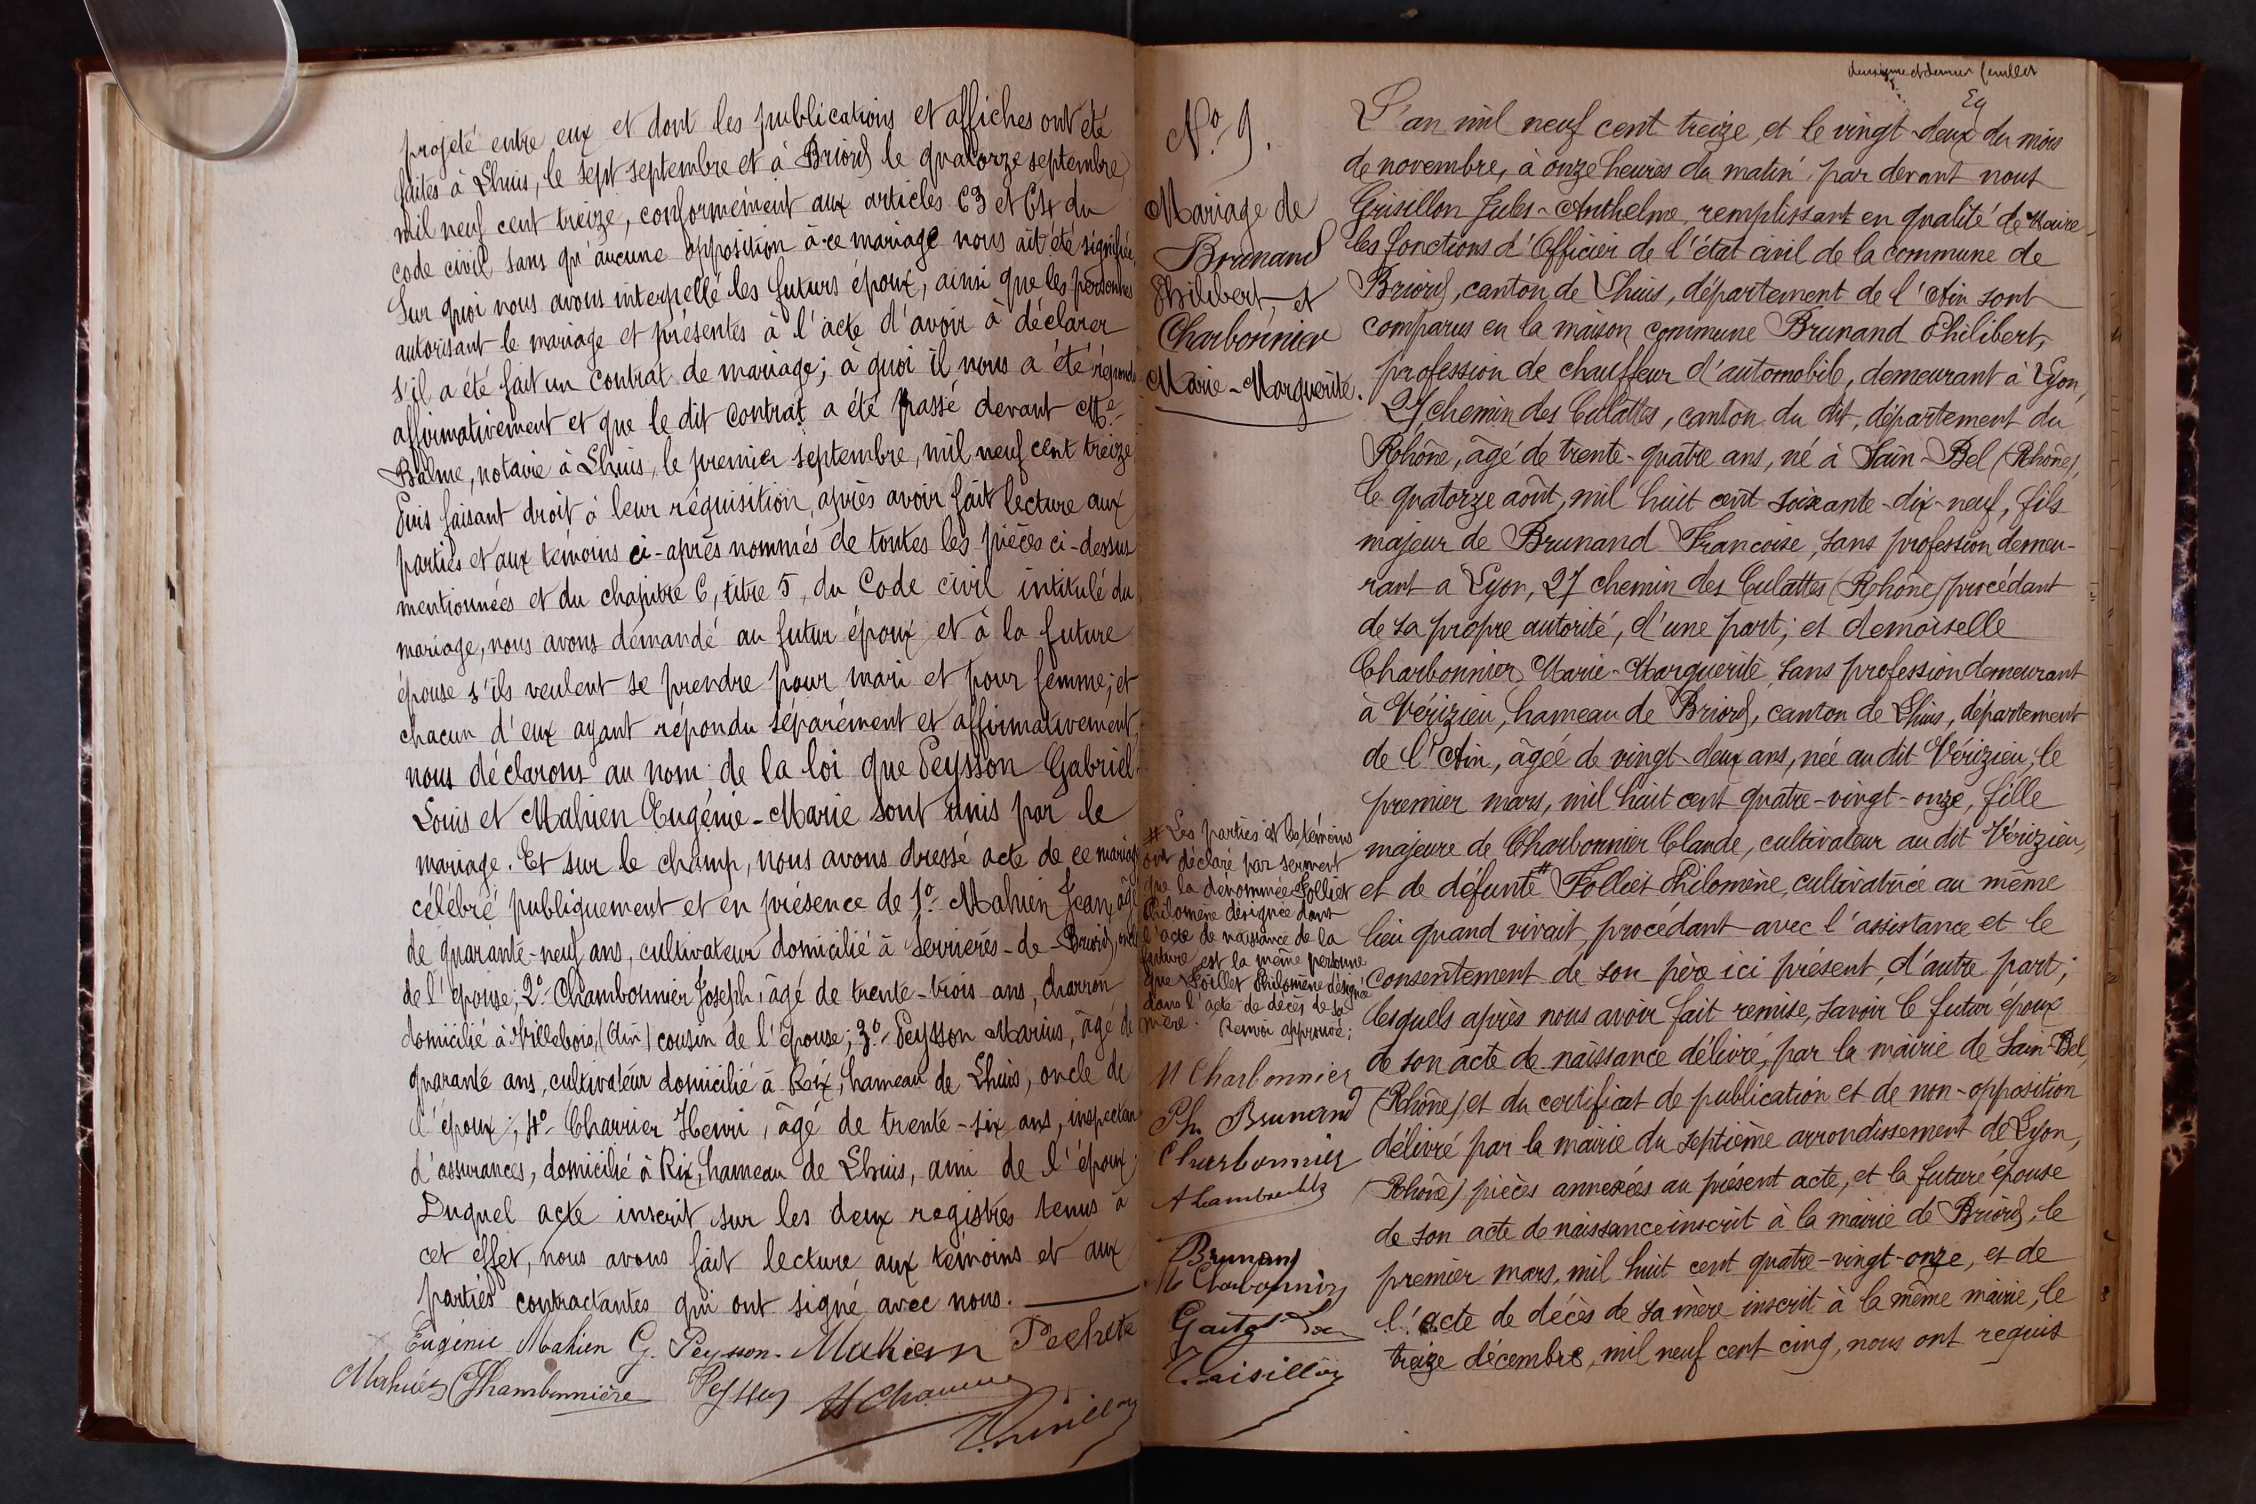 projeté entre eux et dont les publications et affiches ont été
faites à Lhuis, le sept septembre et à Briord le quatorze septembre
mil neuf cent treize, conformément aux articles 63 et 64 du
code civil sans qu'aucune opposition à ce mariage nous ait été signifiée.
Sur quoi nous avons interpellé les futurs époux, ainsi que les personnes
autorisant le mariage et présentes à l'acte d'avoir à déclarer
s'il a été fait un contrat de mariage; à quoi il nous a été répondu
affirmativement et que le dit contrat a été passé devant Me
Balme, notaire à Lhuis, le premier septembre, mil neuf cent treize
Puis faisant droit à leur réquisition, après avoir fait lecture aux
parties et aux témoins ci-après nommés de toutes les pièces ci-dessus
mentionnées et du chapitre 6, titre 5, du Code civil intitulé du
mariage, nous avons demandé au futur époux et à la future
épouse s'ils veulent se prendre pour mari et pour femme; et
chacun d'eux ayant répondu séparément et affirmativement,
nous déclarons au nom de la loi que Peysson Gabriel-
Louis et Mahien Eugénie-Marie sont unis par le
mariage. Et sur le champ, nous avons dressé acte de ce mariage
célébré publiquement et en présence de 1° Mahien Jean, âgé
de quarante-neuf ans, cultivateur domicilié à Serrières-de-Briord, oncle
de l'épouse; 2° Chambonnier Joseph, âgé de trente-trois ans, charron
domicilié à Villebois, (Ain) cousin de l'épouse; 3° Peysson Marius, âgé de
quarante ans, cultivateur domicilié à Rix, hameau de Lhuis, oncle de
l'époux; 4° Charrier Henri, âgé de trente-six ans, inspecteur
d'assurances, domicilié à Rix, hameau de Lhuis, ami de l'époux;
Duquel acte inscrit sur les deux registres tenus à
cet effet, nous avons fait lecture aux témoins et aux
parties contractantes qui ont signé avec nous.
Eugénie Mahien G. Peysson. Mahien
Chambonnière
N° 9.
Mariage de
Brunand
Philibert et
Charbonnier
Marie-Marguerite.
# Les parties et les témoins
ont déclaré par serment
que la dénommée Folliet
Philomène désignée dans
l'acte de naissance de la
future est la même personne
que Foillet Philomène désignée
dans l'acte de décès de sa
mère. Renvoi approuvé:
M Charbonnier
Ph. Brunand
Charbonnier
Brunand
M Charbonnier
Grisillon
deuxième et dernier feuillet
L'an mil neuf cent treize, et le vingt-deux du mois
de novembre, à onze heures du matin, par devant nous
Grisillon Jules-Anthelme, remplissant en qualité de Maire
les fonctions d'Officier de l'état civil de la commune de
Briord, canton de Lhuis, département de l'Ain sont
comparus en la maison commune Brunand Philibert,
profession de chauffeur d'automobile, demeurant à Lyon,
27, chemin des Culattes, canton du dit, département du
Rhône, âgé de trente-quatre ans, né à Sain-Bel (Rhône),
le quatorze août, mil huit cent soixante-dix-neuf, fils
majeur de Brunand Françoise, sans profession demeu-
rant a Lyon, 27 chemin des Culattes (Rhône) procédant
de sa propre autorité, d'une part; et demoiselle
Charbonnier Marie-Marguerite, sans profession demeurant
à Vérizieu, hameau de Briord, canton de Lhuis, département
de l'Ain, âgée de vingt-deux ans, née au dit Vérizieu, le
premier mars, mil huit cent quatre-vingt-onze, fille
majeure de Charbonnier Claude, cultivateur au dit Vérizieu,
et de défunte # Folliet Philomène, cultivatrice au même
lieu quand vivait, procédant avec l'assistance et le
consentement de son père ici présent, d'autre part;
lesquels après nous avoir fait remise, savoir le futur époux
de son acte de naissance délivré, par la mairie de Sain-Bel,
(Rhône) et du certificat de publication et de non-opposition
délivré par la mairie du septième arrondissement de Lyon,
(Rhône) pièces annexées au présent acte, et la future épouse
de son acte de naissance inscrit à la mairie de Briord, le
premier mars, mil huit cent quatre-vingt-onze, et de
l'acte de décès de sa mère inscrit à la même mairie, le
treize décembre, mil neuf cent cinq, nous ont requis